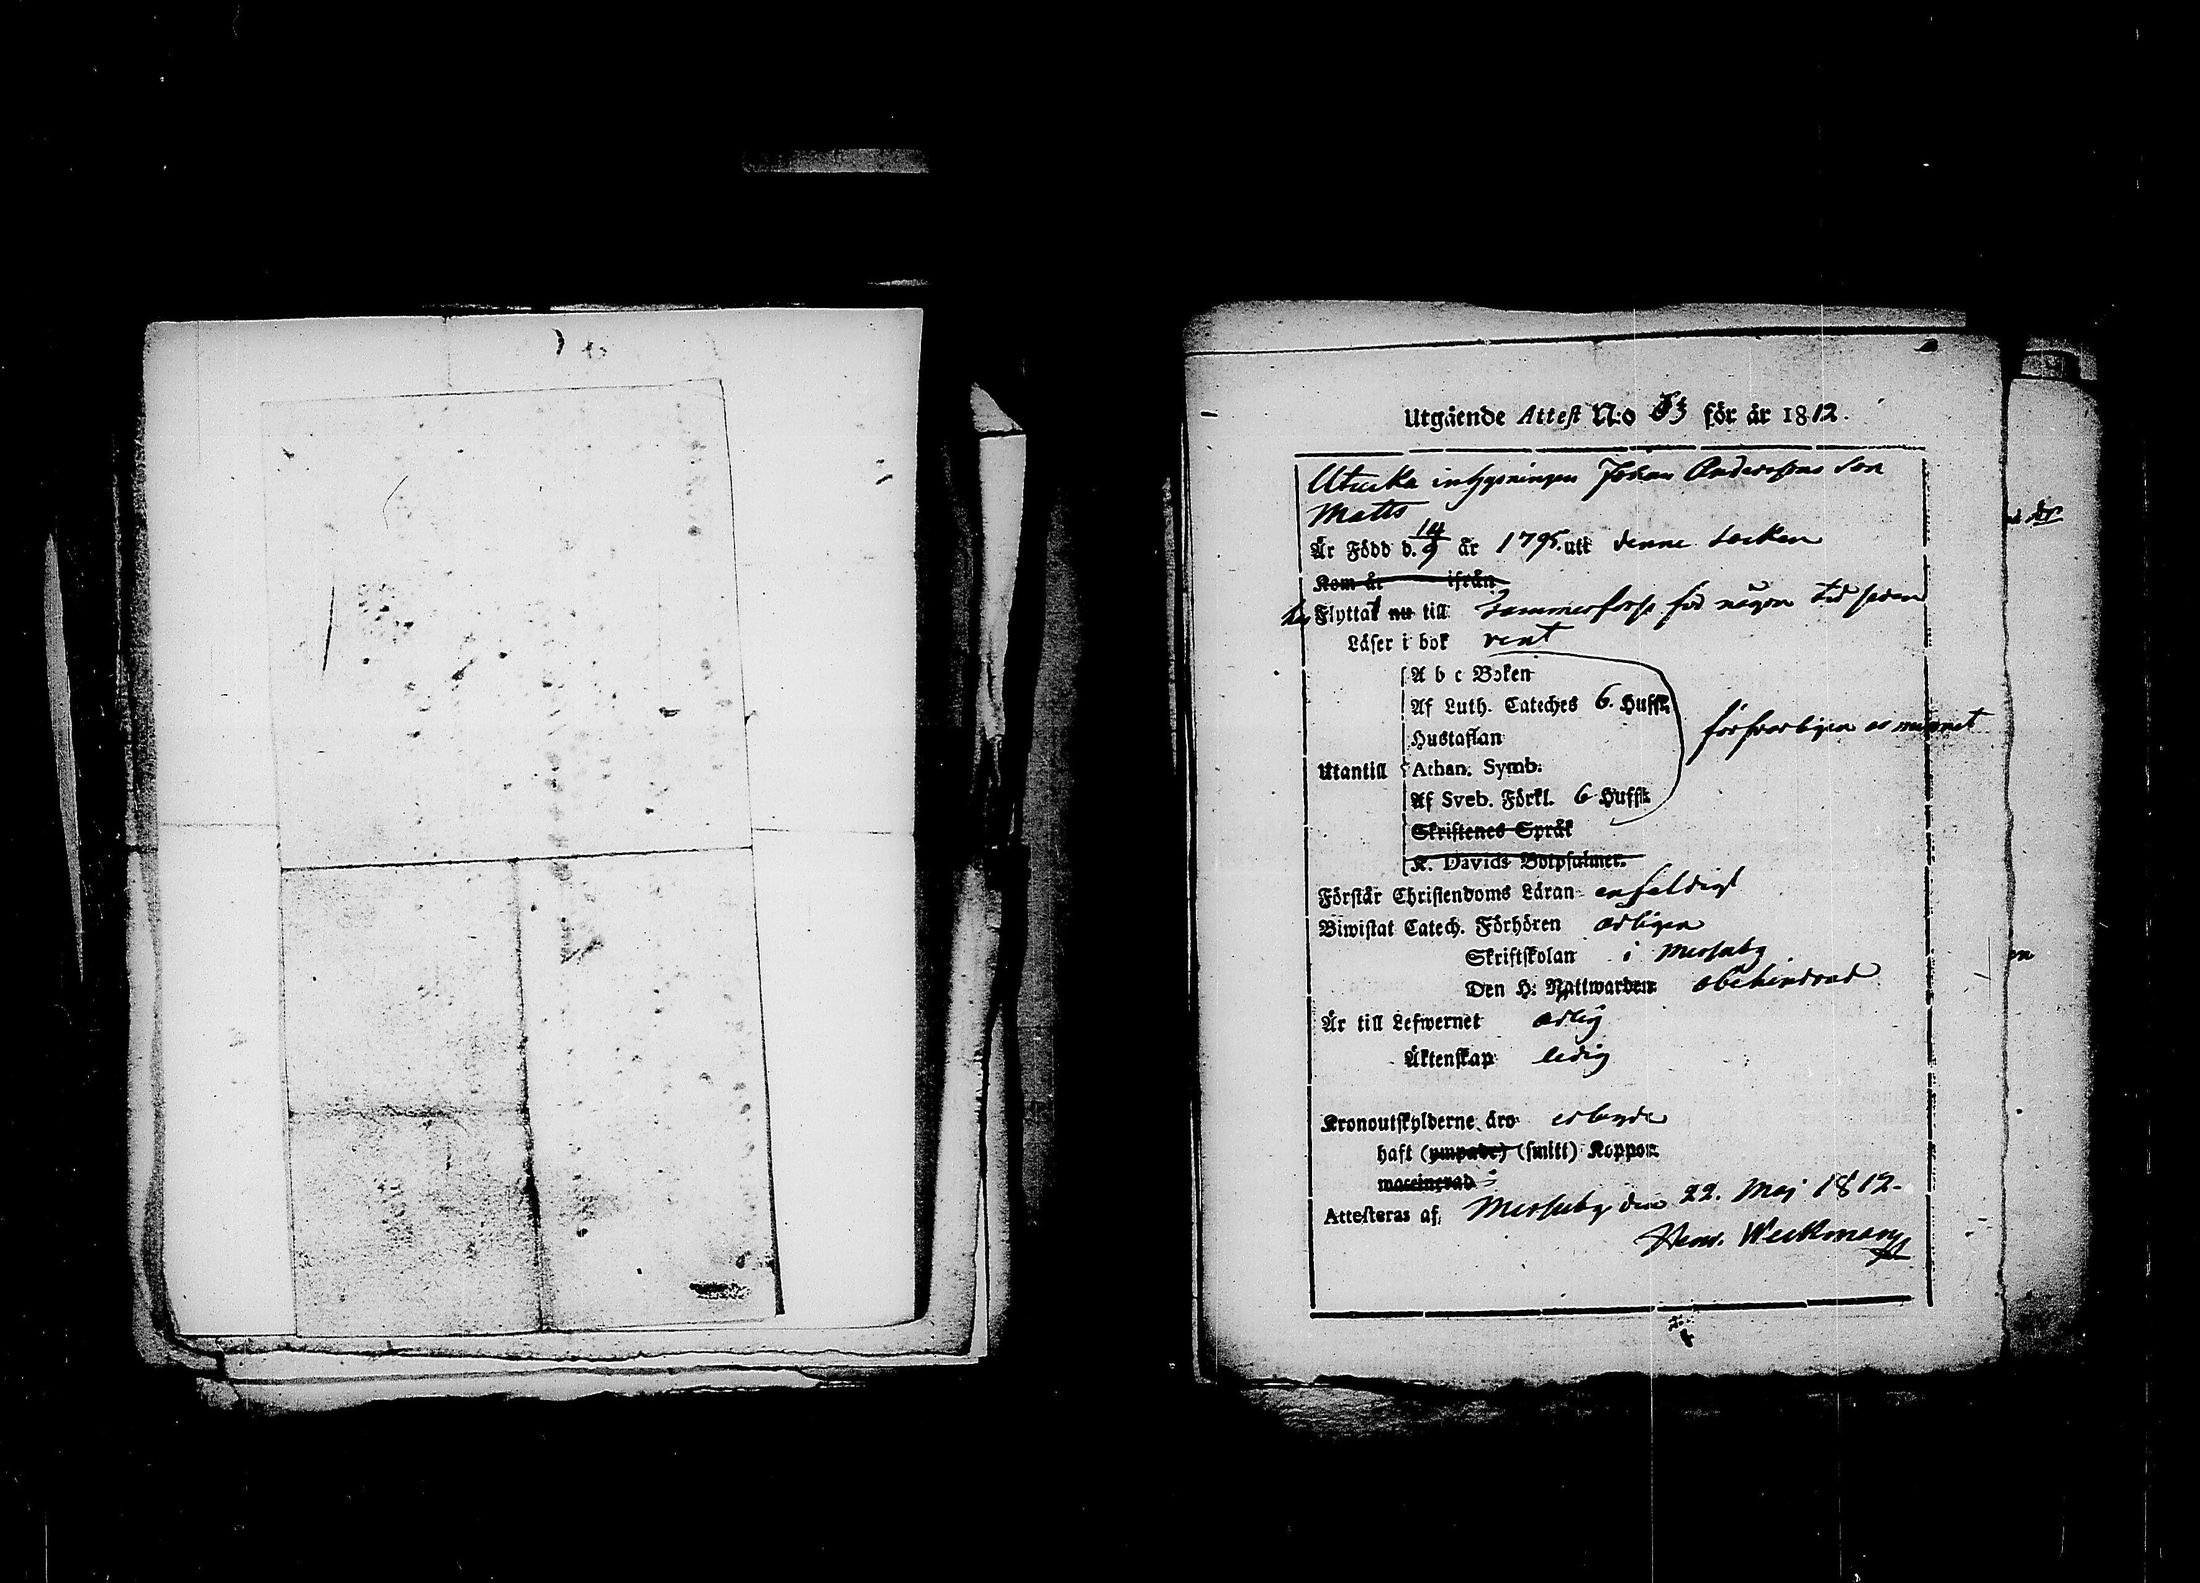 Utgående Attest N:o 53 för år 1812.
inhysningen Johan Anderssons son
Matts
Är Född d. 14/9 år 1795. uti denne socken
Kom år ifrån
har Flyttat nu till Tammerfors för någon tid sedan
Läser i bok rent
A b c Boken
Af Luth. Cateches 6. Huffst.
Hustaflan
förswarligen ur minnet
Utantill Athan. Symb.
Af Sveb. Förkl. 6 Huffst.
Skriftenes Språk
K. Davids Botpsalmer.
Förstår Christendoms Läran enfaldigt
Biwistat Catech. Förhören årligen
Skriftskolan i Messuby
Den H. Nattwarden obehindrad
Är till Lefwernet ärlig
Äktenskap ledig
Kronoutskylderne äro erlagde
haft (ympade) (smitt) Koppor.
waccinerad
Attesteras af, Messuby den 22. Maj 1812.
Henr. Weckman